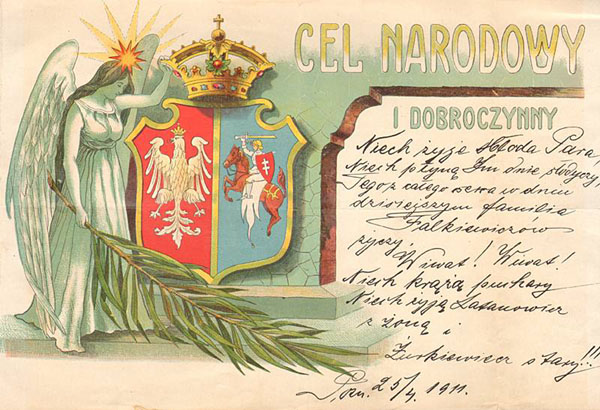 CEL NARODOWY
I DOBROCZYNNY
Niech żyje Młoda Para,
Niech płyną Im dnie słodyczy,
Tego z całego serca w dniu
dzisiejszym familia
Falkiewiczow
życzy.
Wiwat! Wiwat!
Niech krążą puchary
Niech żyją
z żoną i
Żurkiewicz stary!!!
Pozn. 25/4. 1911.